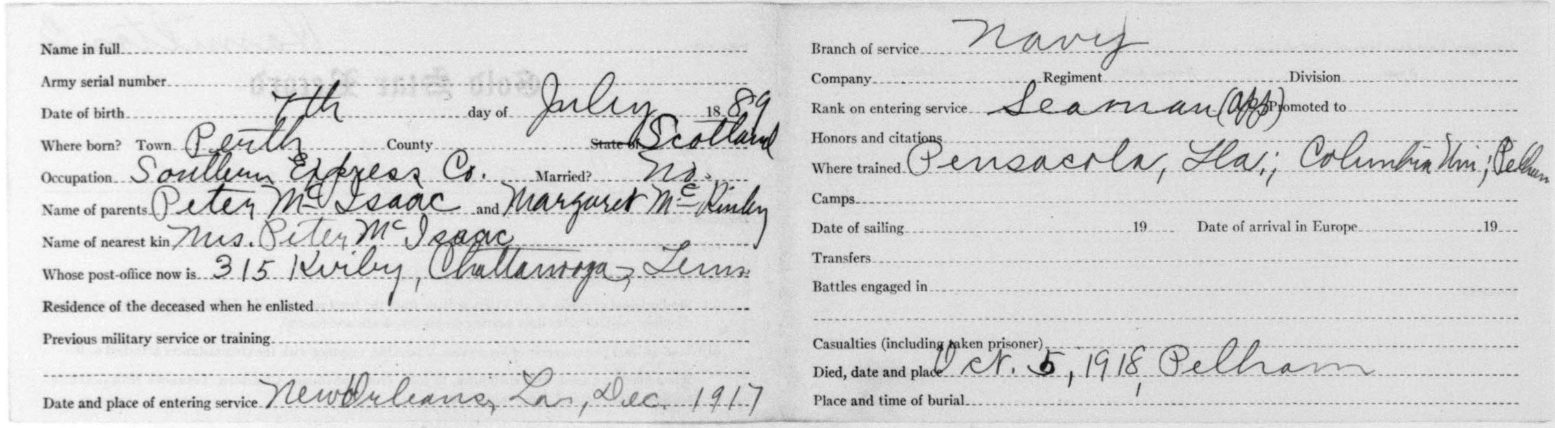 Name in full
Army serial number
Date of birth 7th day of July 1889
Where born? Town Perth County State or Scotland
Occupation Southern Express Co. Married? No.
Name of parents Peter McIsaac and Margaret McKinley
Name of nearest kin Mrs. Peter McIsaac
Whose post-office now is 315 Kirby, Chattanooga, Tenn.
Residence of the deceased when he enlisted
Previous military service or training
Date and place of entering service New Orleans, La., Dec. 1917
Branch of service Navy
Company Regiment Division
Rank on entering service Seaman (app) Promoted to
Honors and citations
Where trained Pensacola, Fla.; Columbia Uni; Pelham
Camps
Date of sailing 19 Date of arrival in Europe 19
Transfers
Battles engaged in
Casualties (including taken prisoner)
Died, date and place Oct. 5, 1918, Pelham
Place and time of burial